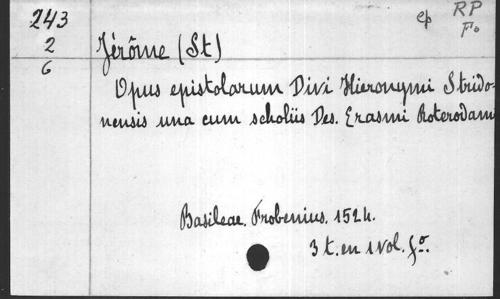 243
2
6
ep RP
Fo
Jérôme (St)
Opus epistolarum Divi Hieronymi Strido-
nensis una cum scholiis Des. Erasmi Roterodami
Basileae. Frobenius. 1524.
3 t. en 1 vol. fo.